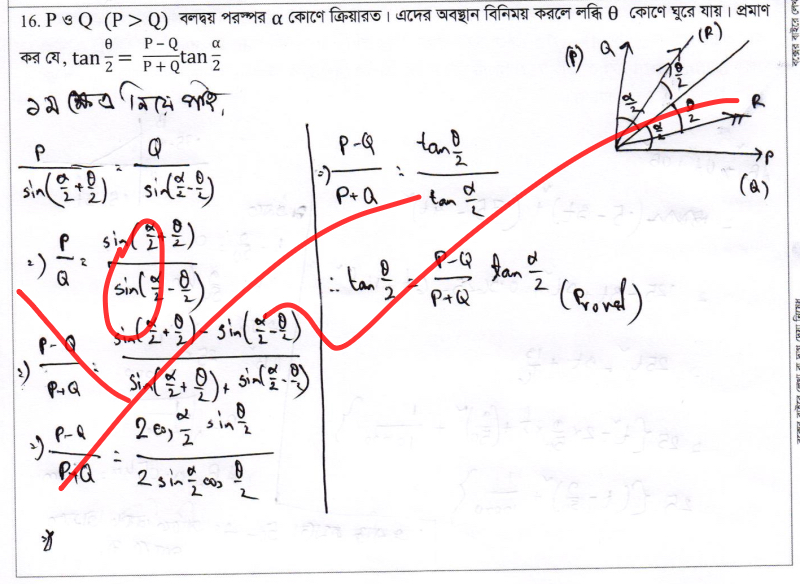 16. P ও Q (P > Q) বলদ্বয় পরস্পর α কোণে ক্রিয়ারত। এদের অবস্থান বিনিময় করলে লব্ধি θ কোণে ঘুরে যায়। প্রমাণ
কর যে, tan θ/2 = (P−Q)/(P+Q) tan α/2
(P) Q (R)
α/2 θ/2
α/2 θ/2 R
P
(Q)
P/sin(α/2 + θ/2) = Q/sin(α/2 − θ/2)
⇒) P/Q = sin(α/2 + θ/2)/sin(α/2 − θ/2)
⇒) P−Q/P+Q = sin(α/2 + θ/2) − sin(α/2 − θ/2)/sin(α/2 + θ/2) + sin(α/2 − θ/2)
⇒) P−Q/P+Q = 2 cos α/2 sin θ/2/2 sin α/2 cos θ/2
⇒) P−Q/P+Q = tan θ/2/tan α/2
∴ tan θ/2 = P−Q/P+Q tan α/2 (Proved)